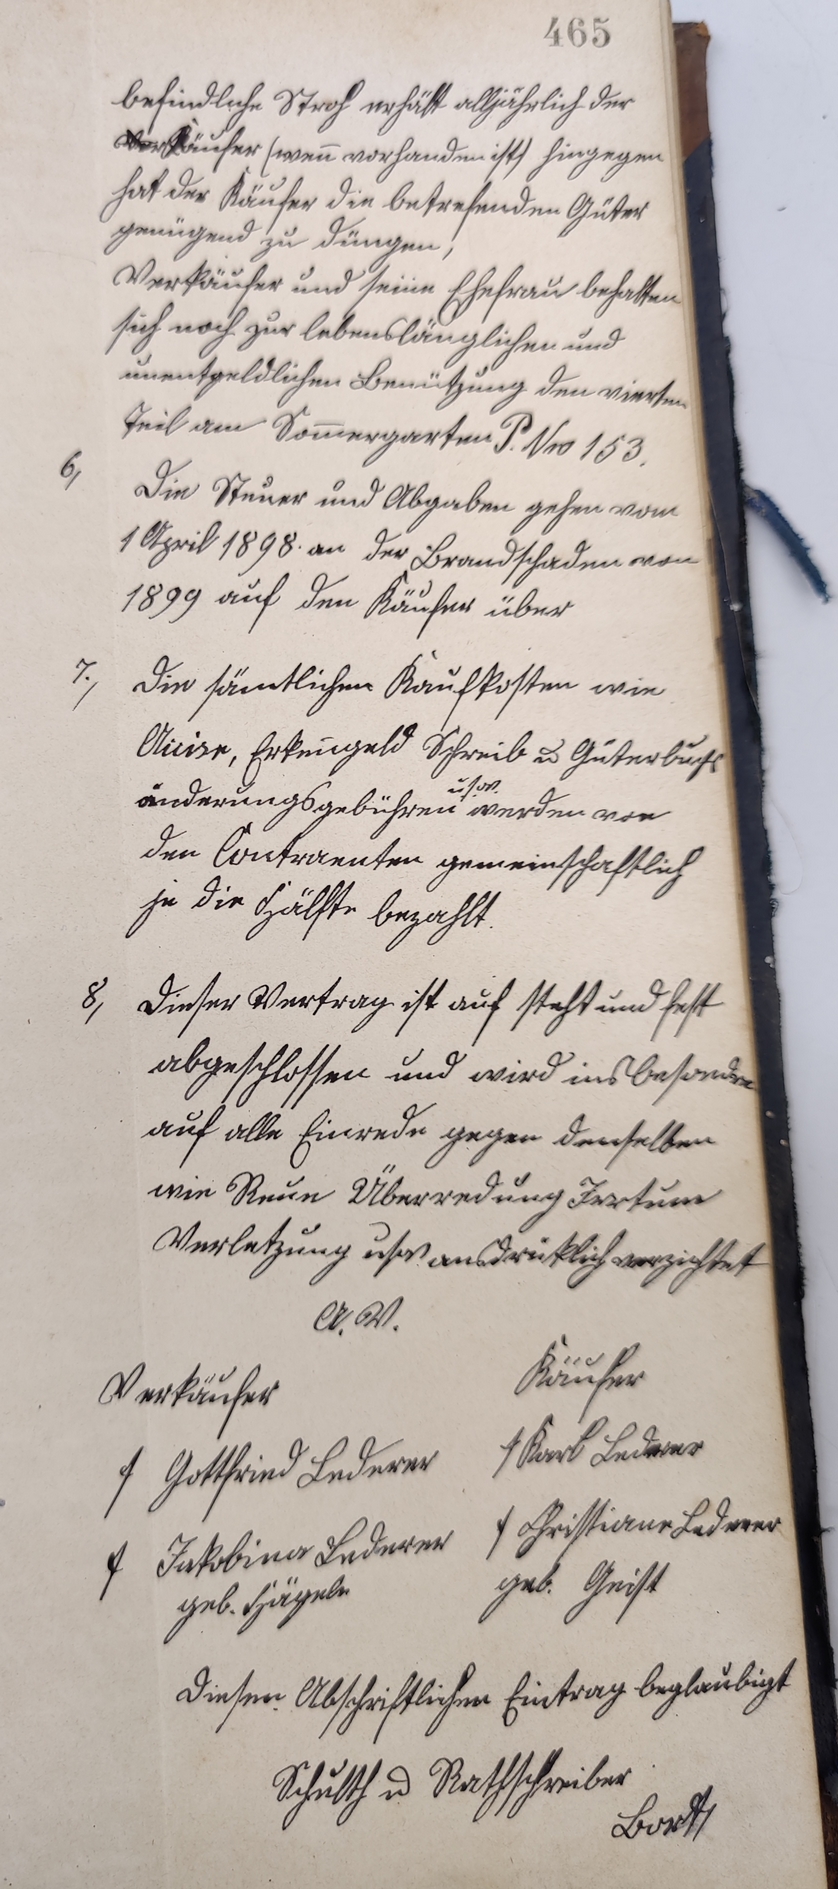 465
befindliche Stroh erhält alljährlich der
Verkäufer (wen̄ vorhanden ist) hingegen
hat der Käufer die betrefenden Güter
genügend zu düngen,
Verkäufer und seine Ehefrau behalten
sich noch zur lebenslänglichen und
unentgeldlichen Benützung den vierten
Teil am Som̄ergarten P. Nro 153.
6, Die Steuer und Abgaben gehen vom
1 April 1898. an der Brandschaden von
1899 auf den Käufer über
7., Die sämtlichen Kaufkosten wie
Accise, Erken̄geld Schreib u Güterbuchs
änderungsgebühren usw. werden von
den Contraenten gemeinschaftlich
je die Hälfte bezahlt.
8, Dieser Vertrag ist auf steht und fest
abgeschlossen und wird ins besondre
auf alle Einrede gegen denselben
wie Reue Überredung Irrtum
Verletzung usw ausdrüklich verzichtet
A. V.
Verkäufer Käufer
Gottfried Lederer Karl Lederer
Jakobina Lederer Christiane Lederer
geb. Hägele geb. Geist
Diesen Abschriftlichen Eintrag beglaubigt
Schulth u Rathschreiber